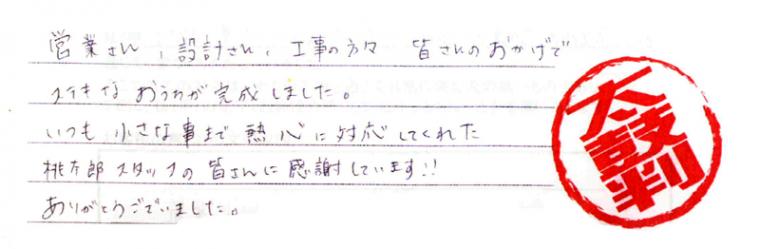 営業さん、設計さん、工事の方々 皆さんのおかげで
ステキなおうちが完成しました。
いつも小さな事まで熱心に対応してくれた
桃太郎スタッフの皆さんに感謝しています!!
ありがとうございました。
太鼓判